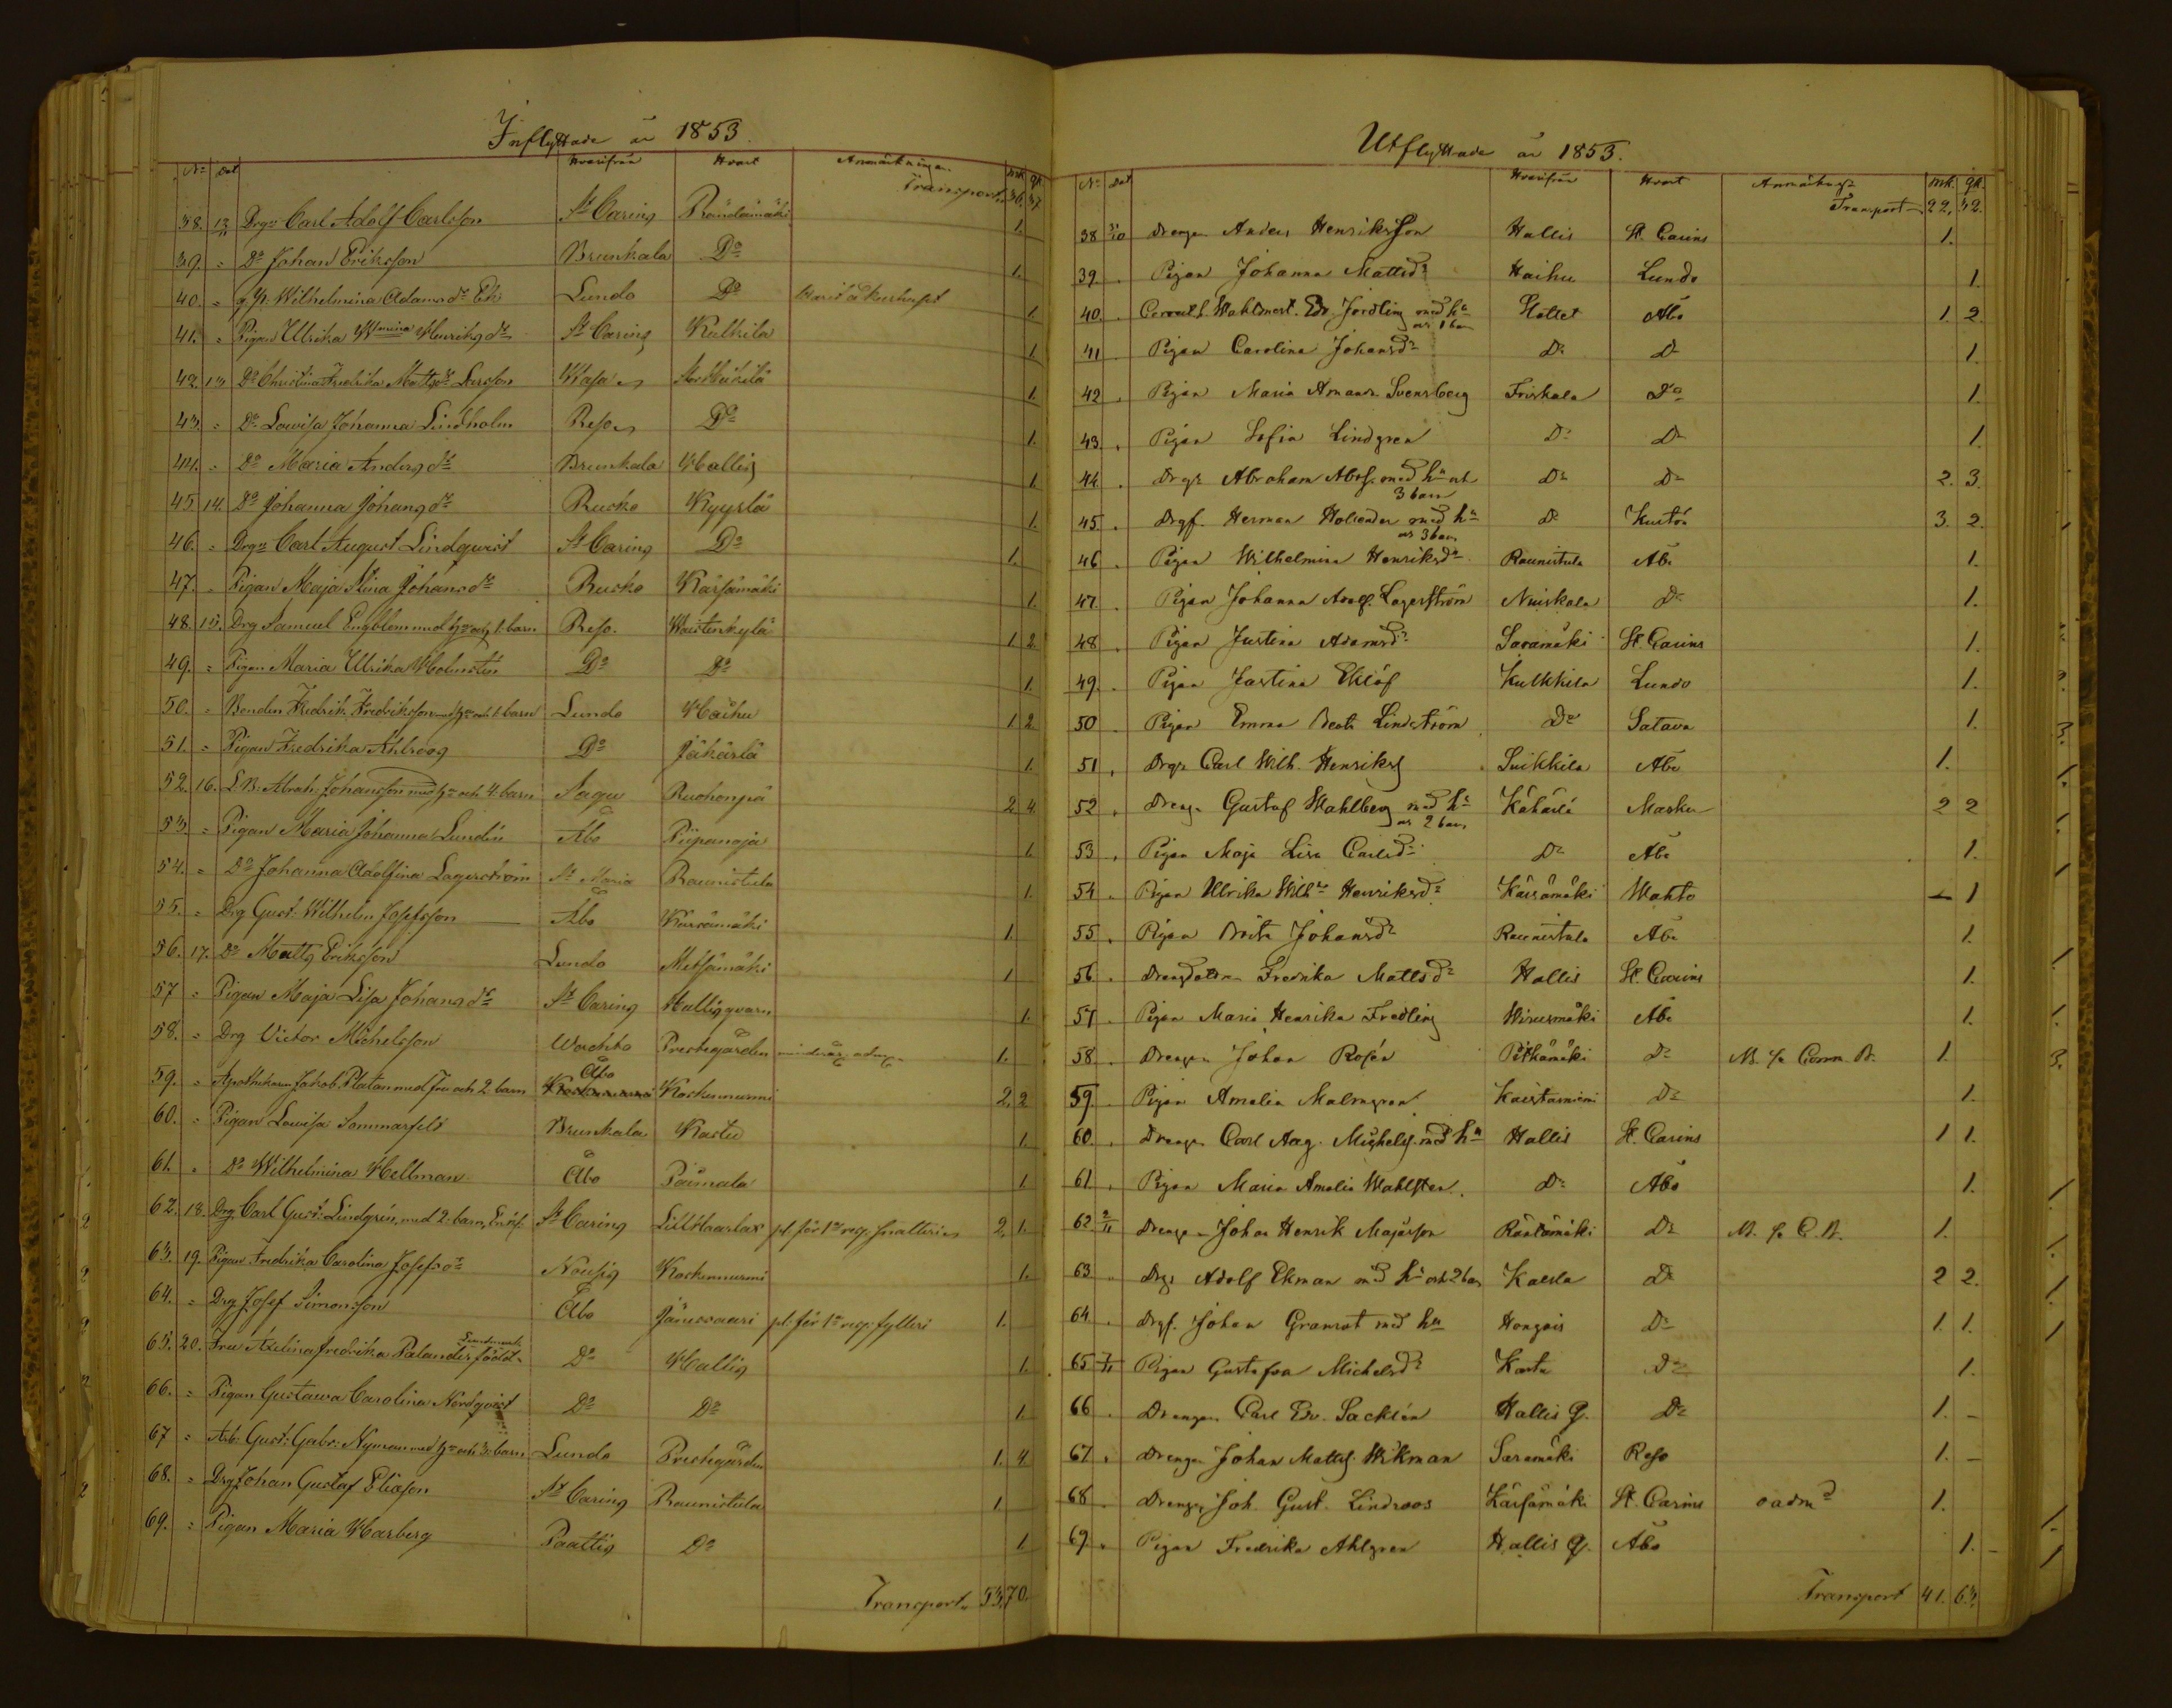 Inflyttade år 1853.
No Dat Hvarifrån Hvart Anmärkningar Mk. Qk.
Transport 36. 37.
38. 13/11 Drgn Carl Adolf Carlsson St Carins Räntämäki 1.
39. " Do Johan Eriksson Brunkala Do 1.
40. " g. p. Wilhelmina Adamsdr Ek Lundo Do 1.
41. " Pigan Ulrika Wmina Henriksdr St Carins Kulkila 1.
42. 13 Do Christina Fredrika Mattsdr Larsson Wasa 1.
43. " Do Lowisa Johanna Lindholm Reso Do 1.
44. " Do Maria Andersdr Brunkala Hallis 1.
45. 14. Do Johanna Johansdr Rusko 1.
46. " Drgn Carl August Lindqwist St Carins Do 1.
47. " Pigan Maja Stina Johansdr Rusko Kärsämäki 1.
48. 15. Drg Samuel Engblom med h. och 1. barn Reso. 1. 2.
49. " Pigan Maria Ulrika Holmstén Do Do 1.
50. " Bonden Fredrik Fredriksson med h. och 1 barn Lundo Haihu 1. 2
51. " Pigan Fredrika Ahlroos Do Jäkärlä 1.
52. 16. Abrah. Johansson med h. och 4. barn Sagu Ruohonpä 2. 4
53. " Pigan Maria Johanna Lundén Åbo Piipanoja 1.
54. " Do Johanna Adolfina Lagerström St Maria Raunistula 1.
55. " Drg Gust. Wilhelm Josefsson Åbo Kärsämäki 1.
56. 17. Do Matts Eriksson Lundo Metsämäki 1
57 " Pigan Maja Lisa Johansdr St Carins Hallisqvarn 1.
58. " Drg Victor Michelsson Wachto Prestegården 1.
59. " Apothekaren Jakob Platan med fru och 2 barn Åbo Kockennurmi 2. 2
60. " Pigan Lowisa Sommarfelt Brunkala Kastu 1.
61. " Do Wilhelmina Hellman Åbo Paimala 1.
62. 18. Drg Carl Gust. Lindgrén, med 2. barn, Enkf. St Carins pl. för 1a reg. snatteri 2. 1.
63. 19. Pigan Fredrika Carolina Josefsdr Nousis Kockennurmi 1.
64. " Drg Josef Simonsson Åbo Jänessaari pl. för 1a reg. fylleri 1.
65. 20. Fru Axelina fredrika Palander född Do Hallis 1.
66. " Pigan Gustawa Carolina Nordqvist Do Do 1.
67 " Arb. Gust. Gabr. Nyman med h. och 3. barn Lundo Prestegården 1. 4
68. " Drg Johan Gustaf Eliasson St Carins Raunistula 1
69. " Pigan Maria Harberg Paattis Do 1.
Transport. 53. 70.
Utflyttade år 1853.
No Dat Hvarifrån Hvart Anmärkngr Mk. Qk.
Transport 22. 32.
38 Drengen Anders Henriksson Hallis St. Carins 1.
39. Pigan Johanna Mattsdr Haihu Lundo 1.
40. Wahlmest. Edv. Jordling med hu Slottet Åbo 1. 2.
och 1 barn
41 Pigan Carolina Johansdr Do Do 1.
42 Pigan Maria Amanda Svensberg Friskala Do 1.
43. Pigan Sofia Lindgren Do Do 1.
44. Drgn Abraham Abrs. med hu och Do Do 2. 3.
3 barn
45. Drgf. Herman Holender med hu Do Kustön 3. 2.
och 3 barn
46. Pigan Wilhelmina Henriksdr Raunistula Åbo 1.
47. Pigan Johanna Adolf. Lagerström Nuiskala Do 1.
48 Pigan Justina Adamsdr Saramäki St. Carins 1.
49. Pigan Justina Eklöf Kulkkila Lundo 1.
50 Pigan Emma Beata Lindström Do Satava 1.
51. Drgn Carl Wilh. Henrikss Suikkila Åbo 1.
52. Drengn Gustaf Wahlberg med hu Masku 2 2
och 2 barn
53. Pigan Maja Lisa Carlsdr Do Åbo 1.
54. Pigan Ulrika Wilhna Henriksdr Kärsämäki Wahto – 1
55. Pigan Brita Johansdr Raunistula Åbo 1.
56. Fredrika Mattsdr Hallis St. Carins 1.
57 Pigan Maria Henrika Fredling Åbo 1.
58. Drengen Johan Rosén Pitkämäki Do M. fr Conn. B. 1.
59. Pigan Amalia Malmgren Kaistarniemi Do 1.
60. Drengen Carl Aug. Michelss. med hu Hallis St. Carins 1 1.
61. Pigan Maria Amalia Wahlsten. Do Åbo 1.
62 2/11 Drengen Johan Henrik Majasson Räntämäki Do M. fr C. B. 1.
63 Drgn Adolf Ekman med hu och 2 barn Kaerla Do 2 2.
64. Drgf. Johan Granrot med hu Do 1. 1.
65 7/11 Pigan Gustafva Michelsdr Kastu Do 1.
66. Drengen Carl Ev. Sacklén Hallis q. Do 1. –
67. Drengen Johan Mattss. Wikman Saramäki Reso 1. –
68 Drengen Joh. Gust. Lindroos Kärsämäki St. Carins oadmd 1.
69. Pigan Fredrika Ahlgren Hallis q. Åbo 1.
Transport 41. 63.